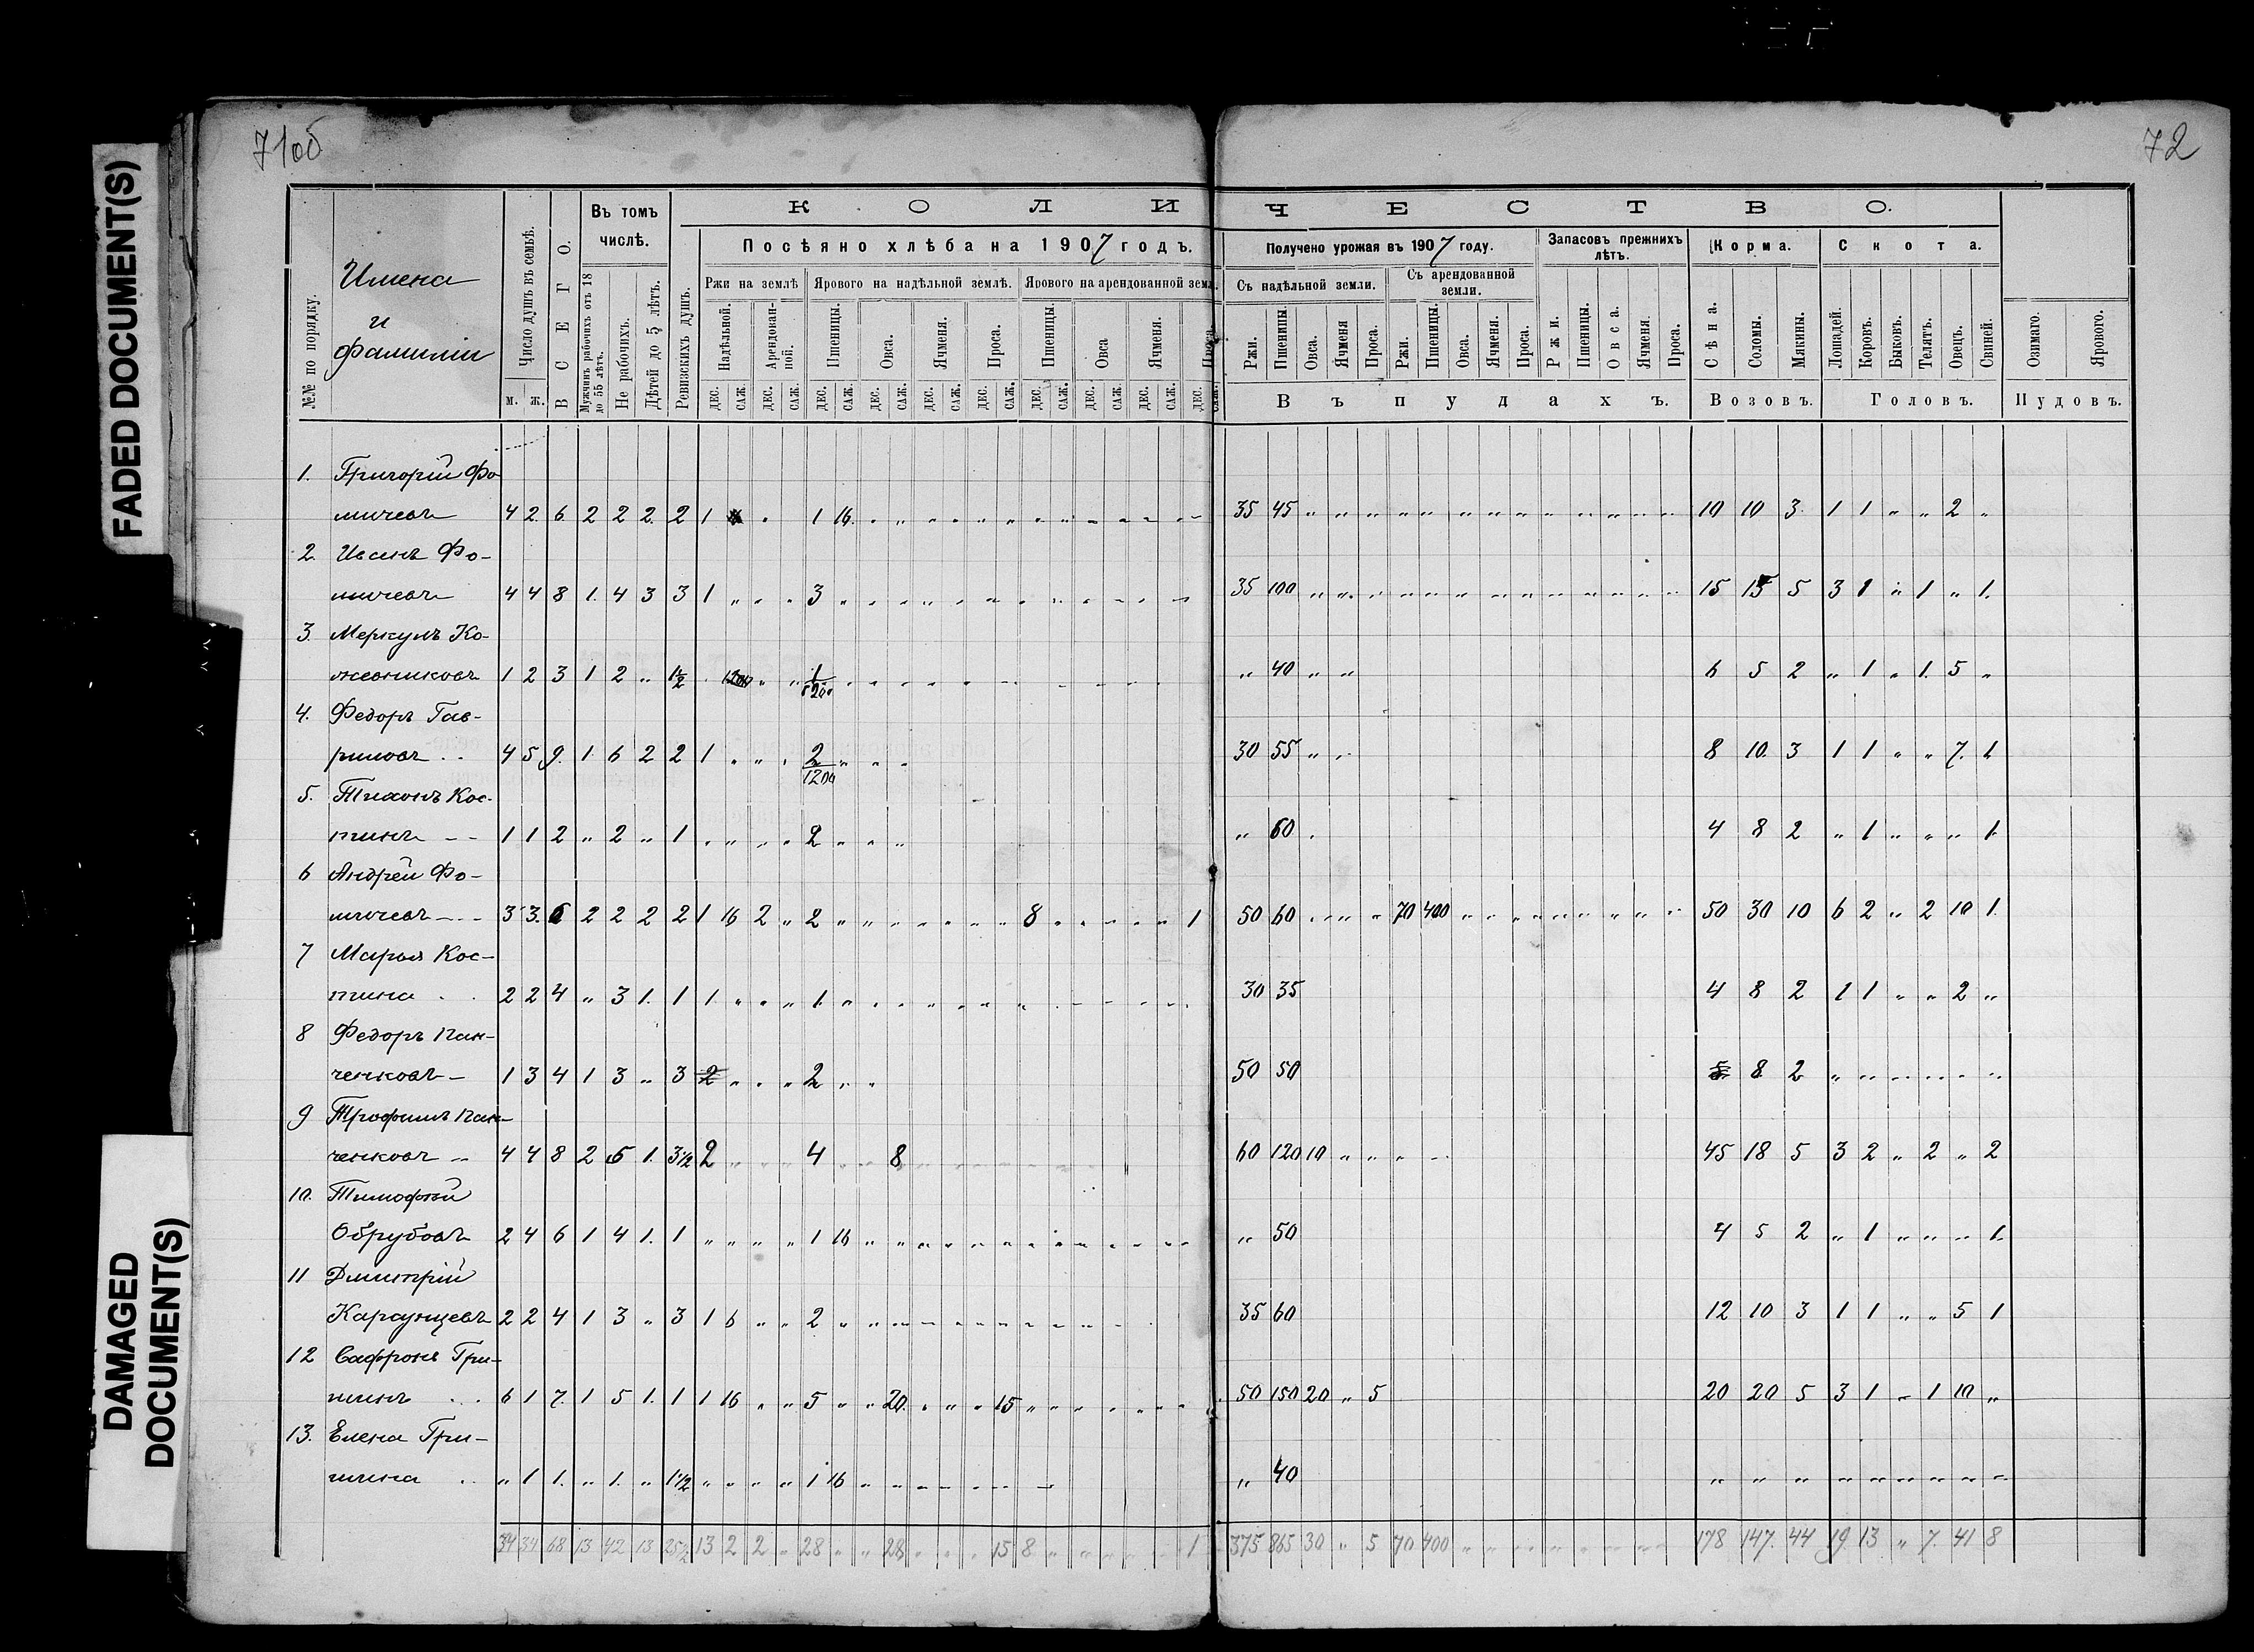 71об
72
FADED DOCUMENT(S)
DAMAGED DOCUMENT(S)
КОЛИЧЕСТВО.
№№ по порядку.
Имена
и
фамиліи
Число душъ въ семьѣ.
м. ж.
ВСЕГО.
Въ томъ числѣ.
Мужчинъ рабочихъ отъ 18 до 55 лѣтъ.
Не рабочихъ.
Дѣтей до 5 лѣтъ.
Ревизскихъ душъ.
Посѣяно хлѣба на 1907 годъ.
Ржи на землѣ
Надѣльной.
Арендованной.
Ярового на надѣльной землѣ.
Пшеницы.
Овса.
Ячменя.
Проса.
Ярового на арендованной земл.
Пшеницы.
Овса
Ячменя.
Проса.
ДЕС. САЖ. ДЕС. САЖ. ДЕС. САЖ. ДЕС. САЖ. ДЕС. САЖ. ДЕС. САЖ. ДЕС. САЖ. ДЕС. САЖ. ДЕС. САЖ. ДЕС. САЖ.
Получено урожая въ 1907 году.
Съ надѣльной земли.
Ржи. Пшеницы. Овса. Ячменя Проса.
Съ арендованной земли.
Ржи. Пшеницы. Овса. Ячменя. Проса.
Запасовъ прежнихъ лѣтъ.
Ржи. Пшеницы. Овса. Ячменя. Проса.
Въ пудахъ.
Корма.
Сѣна. Соломы. Мякины.
Возовъ.
Скота.
Лошадей. Коровъ. Быковъ. Телятъ. Овецъ. Свиней.
Головъ.
Озимаго. Ярового.
Пудовъ.
1. Григорій Фо-
мичевъ 4 2 6 2 2 2 2 1 „ 1 16 35 45 „ „ 10 10 3 1 1 „ „ 2 „
2 Иванъ Фо-
мичевъ 4 4 8 1 4 3 3 1 „ „ „ 3 35 100 „ „ 15 15 5 3 1 „ 1 „ 1
3. Меркулъ Ко-
жевниковъ 1 2 3 1 2 „ 1½ 1200 „ „ 1/1200 „ 40 „ „ 6 5 2 „ 1 „ 1 5 „
4. Федоръ Гав-
риловъ 4 5 9 1 6 2 2 1 „ „ „ 2/1200 30 55 „ „ 8 10 3 1 1 „ „ 7 1
5. Тихонъ Кос-
тинъ 1 1 2 „ 2 „ 1 „ „ „ „ 2 „ 60 4 8 2 „ 1 „ „ „ 1
6 Андрей Фо-
мичевъ 3 3 6 2 2 2 2 1 16 2 „ 2 8 1 50 60 70 400 50 30 10 6 2 „ 2 10 1
7 Марья Кос-
тина 2 2 4 „ 3 1 1 1 „ „ „ 1 30 35 4 8 2 1 1 „ „ 2 „
8 Федоръ Пан-
ченковъ 1 3 4 1 3 „ 3 2 „ „ „ 2 50 50 8 2 „ „ „ „ „ „
9 Трофимъ Пан-
ченковъ 4 4 8 2 5 1 3½ 2 4 8 60 120 10 „ „ 45 18 5 3 2 „ 2 „ 2
10. Тимофѣй
Обрубовъ 2 4 6 1 4 1 1 „ „ „ „ 1 16 „ 50 4 5 2 „ 1 „ „ „ 1
11 Дмитрій
Караунцевъ 2 2 4 1 3 „ 3 1 6 „ „ 2 35 60 12 10 3 1 1 „ „ 5 1
12 Сафронъ Гри-
шинъ 6 1 7 1 5 1 1 1 16 „ „ 5 „ „ 20 15 50 150 20 „ 5 20 20 5 3 1 „ 1 10 „
13. Елена Гри-
шина „ 1 1 „ 1 „ 1½ „ „ „ „ 1 16 „ 40 „ „ „ „ „ „ „ „ „
34 34 68 13 42 13 25½ 13 2 2 „ 28 „ „ 28 15 8 1 375 865 30 „ 5 70 400 178 147 44 19 13 „ 7 41 8